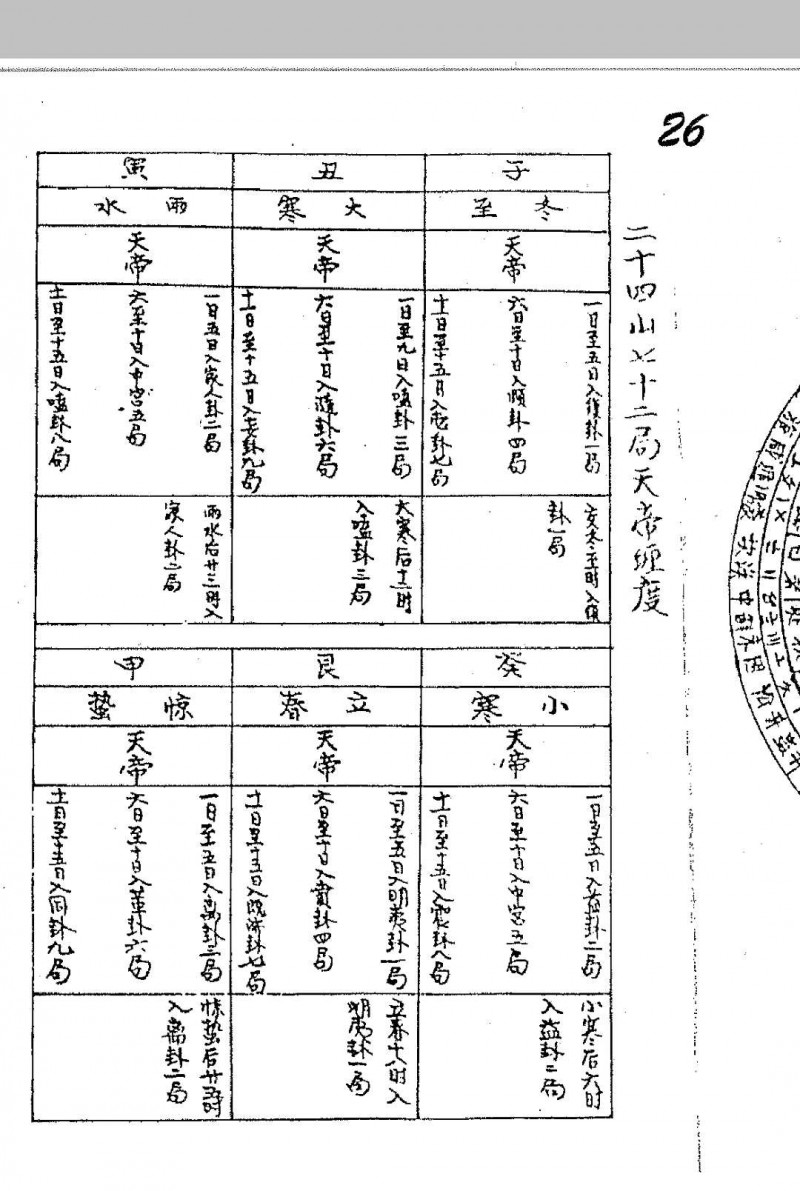 26
二十四山七十二局天帝缠度
子
冬至
天帝
一日至五日入復卦一局
六日至十日入頤卦四局
十一日至十五日入屯卦七局
交冬至时入復
卦一局
丑
大寒
天帝
一日至九日入嗑卦三局
六日至十日入隨卦六局
十一日至十五日入妄卦九局
大寒后十二时
入嗑卦三局
寅
雨水
天帝
一日五日入家人卦二局
六至十日入中宫五局
十一日至十五日入嗑卦八局
雨水后廿三时入
家人卦二局
癸
小寒
天帝
一日至五日入益卦二局
六日至十日入中宫五局
十一日至十五日入震卦八局
小寒后六时
入益卦二局
艮
立春
天帝
一日至五日入明夷卦一局
六日至十日入賁卦四局
十一日至十五日入既济卦七局
立春十八时入
明夷卦一局
甲
惊蛰
天帝
一日至五日入离卦三局
六日至十日入革卦六局
十一日至十五日入同卦九局
惊蛰后廿五时
入离卦二局